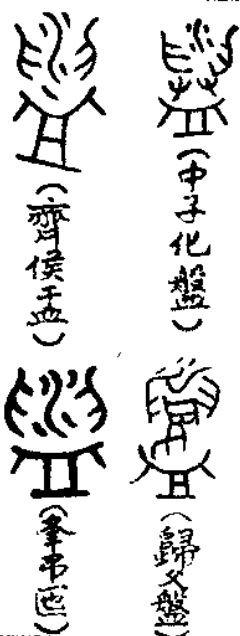 (中子化盤)
(歸父盤)
(齊侯盂)
(夆弔匜)